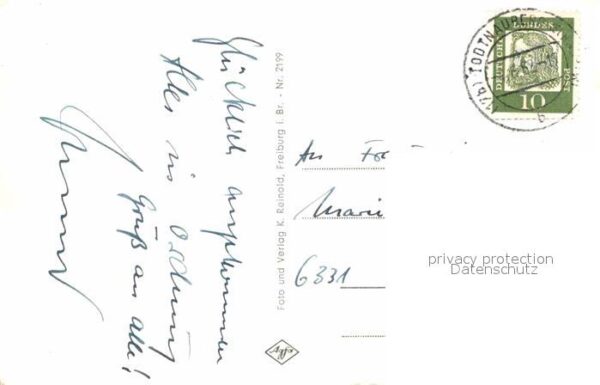 Glücklich angekommen
Alles in Ordnung
Gruß an alle!
Foto und Verlag K. Reinold, Freiburg i. Br. - Nr. 2199
Agfa
(17b) TODTNAUBERG
b
DEUTSCHE BUNDESPOST
10
An
Marie
6331
privacy protection
Datenschutz